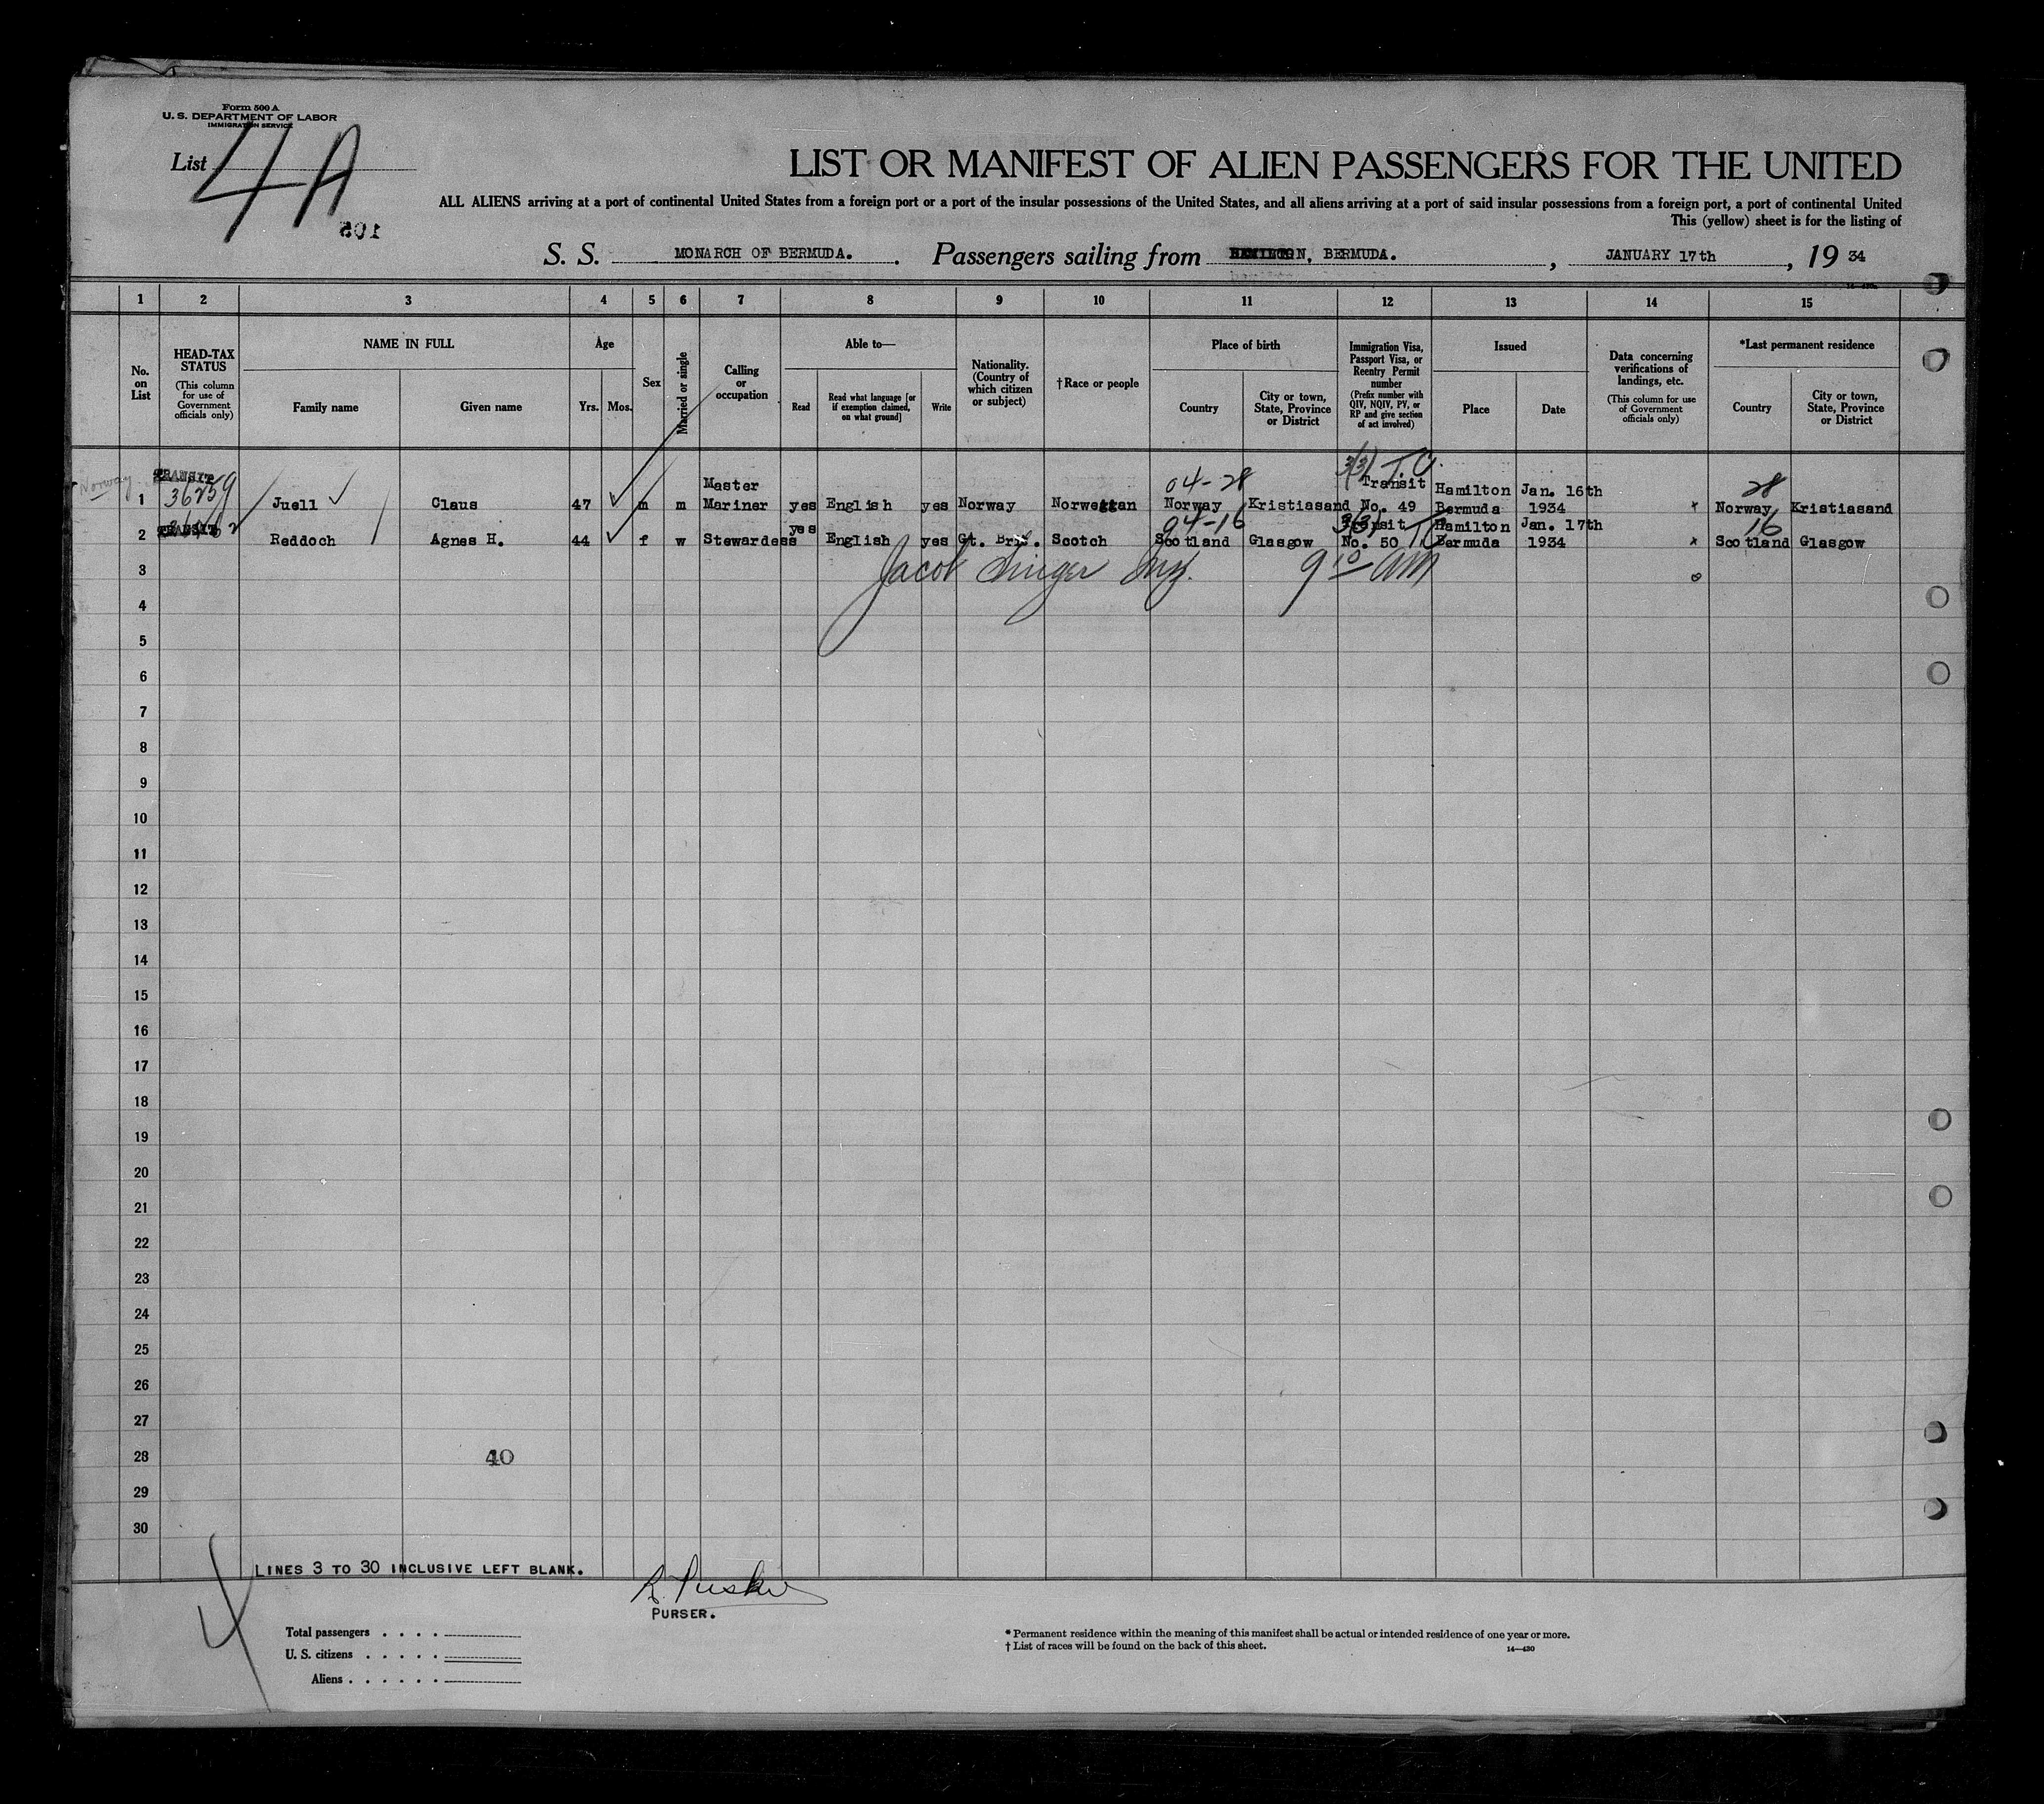 Form 500 A
U. S. DEPARTMENT OF LABOR
IMMIGRATION SERVICE
List 4A
105
LIST OR MANIFEST OF ALIEN PASSENGERS FOR THE UNITED
ALL ALIENS arriving at a port of continental United States from a foreign port or a port of the insular possessions of the United States, and all aliens arriving at a port of said insular possessions from a foreign port, a port of continental United
This (yellow) sheet is for the listing of
S. S. MONARCH OF BERMUDA. Passengers sailing from HAMILTON, BERMUDA. , JANUARY 17th , 19 34
1 2 3 4 5 6 7 8 9 10 11 12 13 14 15
No. on List
HEAD-TAX STATUS (This column for use of Government officials only)
NAME IN FULL
Family name Given name
Age
Yrs. Mos.
Sex
Married or single
Calling or occupation
Able to—
Read Read what language [or if exemption claimed, on what ground] Write
Nationality. (Country of which citizen or subject)
†Race or people
Place of birth
Country City or town, State, Province or District
Immigration Visa, Passport Visa, or Reentry Permit number (Prefix number with QIV, NQIV, PV, or RP and give section of act involved)
Issued
Place Date
Data concerning verifications of landings, etc. (This column for use of Government officials only)
*Last permanent residence
Country City or town, State, Province or District
Norway TRANSIT 04-28 3(3) T.C. 28
1 Juell Claus 47 m m Master Mariner yes English yes Norway Norweggan Norway Kristiasand Transit No. 49 Hamilton Bermuda Jan. 16th 1934 Norway Kristiasand
TRANSIT 04-16 3(3) TC 16
2 Reddoch Agnes H. 44 f w Stewardess yes English yes Gt. Brit. Scotch Scotland Glasgow Transit No. 50 Hamilton Bermuda Jan. 17th 1934 Scotland Glasgow
3 Jacob Singer Insp. 9 10 AM
4
5
6
7
8
9
10
11
12
13
14
15
16
17
18
19
20
21
22
23
24
25
26
27
28 40
29
30
LINES 3 TO 30 INCLUSIVE LEFT BLANK.
PURSER.
Total passengers . . . .
U. S. citizens . . . . .
Aliens . . . . . .
* Permanent residence within the meaning of this manifest shall be actual or intended residence of one year or more.
† List of races will be found on the back of this sheet.
14—430